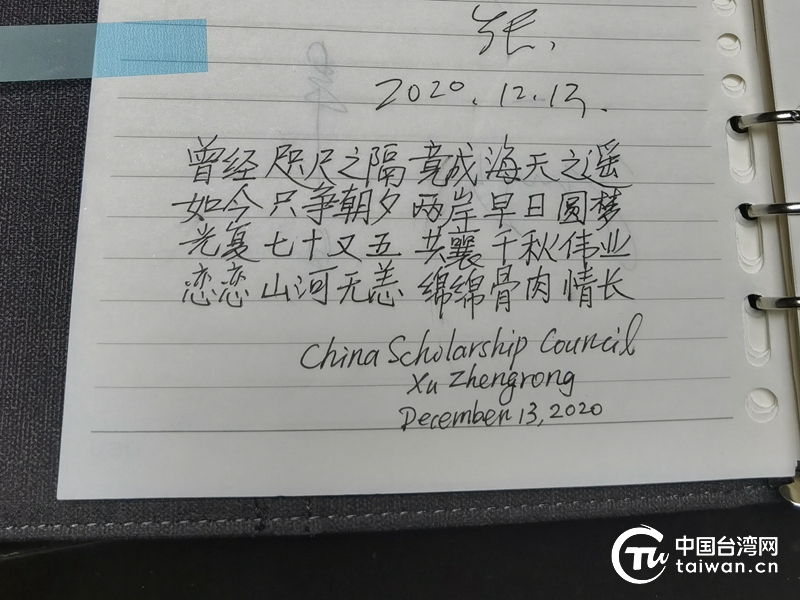 张,
2020.12.13.
曾经 咫尺之隔 竟成 海天之遥
如今 只争朝夕 两岸 早日圆梦
光复 七十又五 共襄 千秋伟业
恋恋 山河无恙 绵绵 骨肉情长
China Scholarship Council
Xu Zhengrong
December 13, 2020
中国台湾网
taiwan.cn